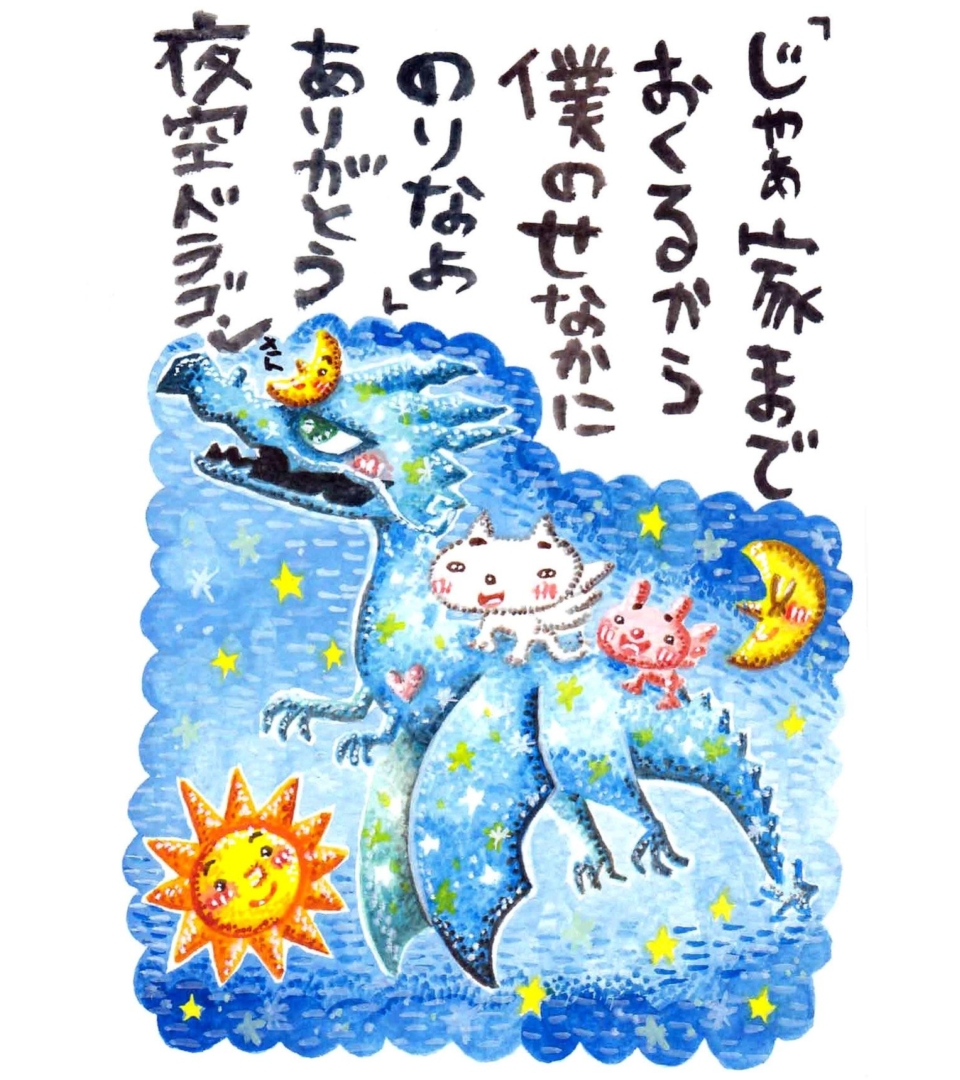 「じゃぁ家まで
おくるから
僕のせなかに
のりなよ」
ありがとう
夜空ドラゴン